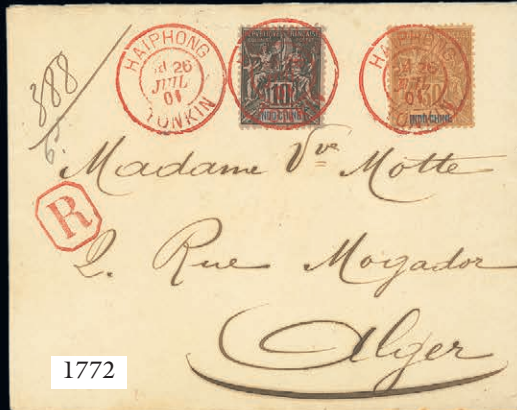 HAIPHONG
26
JUIL
01
TONKIN
10
INDO-CHINE
26
JUIL
01
INDO-CHINE
388
Madame Vve Motte
R
2. Rue Mogador
Alger
1772